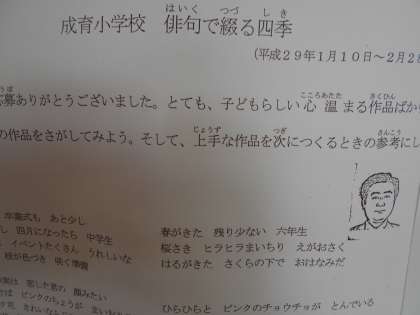 はいく つづ しき
成育小学校 俳句で綴る四季
(平成29年1月10日～2月2
こころあたた さくひん
募ありがとうございました。とても、子どもらしい心温まる作品ばか
じょうず つぎ さんこう
の作品をさがしてみよう。そして、上手な作品を次につくるときの参考にし
卒業式も あと少し
し 四月になったら 中学生
イベントたくさん うれしいな
桜が色づき 咲く準備
春がきた 残り少ない 六年生
桜さき ヒラヒラまいちり えがおさく
はるがきた さくらの下で おはなみだ
ピンクのちょうが
ひらひらと ピンクのチョウチョが とんでいる